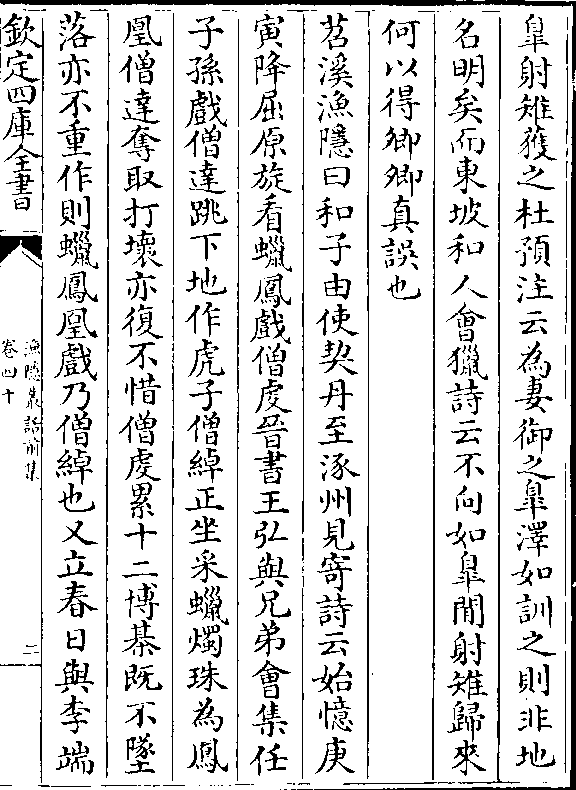 皐射雉獲之杜預注云為妻御之皐澤如訓之則非地
名明矣而東坡和人會獵詩云不向如皐閒射雉歸來
何以得卿卿真誤也
苕溪漁隱曰和子由使契丹至涿州見寄詩云始憶庚
寅降屈原旋看蠟鳳戲僧虔晉書王弘與兄弟會集任
子孫戲僧達跳下地作虎子僧綽正坐采蠟燭珠為鳳
凰僧達奪取打壞亦復不惜僧虔累十二博棊既不墜
落亦不重作則蠟鳳凰戲乃僧綽也又立春日與李端
欽定四庫全書
漁隱叢話前集
卷四十
二